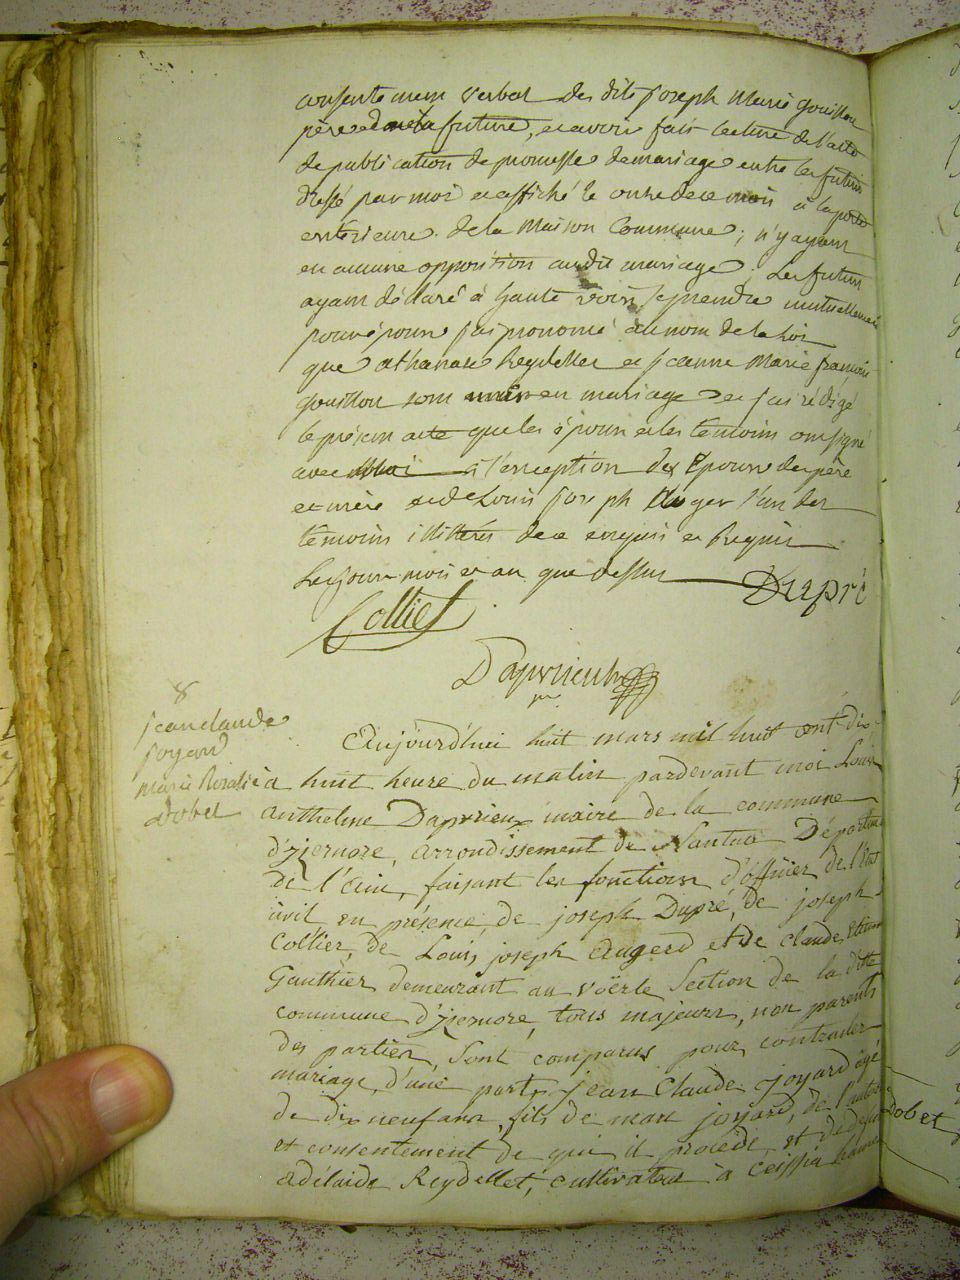 consentement verbal des dits joseph Marie gouillon
père de la future, et avoir fait lecture de l'acte
de publication de promesse de mariage entre les futurs
dressé par moi et affiché le onze de ce mois à la porte
extérieure de la Maison Commune ; n'y ayant
eu aucune opposition audit mariage ; Les futurs
ayant déclaré à haute voix se prendre mutuellement
pour époux j'ai prononcé au nom de la Loi
que athanase Reydellet et jeanne Marie françoise
gouillon sont unis en mariage et j'ai rédigé
le présent acte que les époux et les témoins ont signé
avec Moi à l'exception des Epoux des père
et mère et de Louis joseph Auger l'un des
témoins illittérés de ce enquis et Requis
Les jour mois et an que dessus Dupré
Collier
Dapvrieux
8
jean claude
joyard
marie Rosalie
dobet
Aujourd'hui huit mars mil huit cent dix
à huit heure du matin pardevant moi Louis
anthelme Dapvrieux maire de la commune
d'yzernore, arrondissement de Nantua Départemt
de l'ain, faisant les fonctions d'officier de l'état
civil en présence de joseph Dupré, de joseph
Collier, de Louis joseph Augerd et de Claude Etienne
Gauthier demeurant au voërle Section de la ditte
commune d'yzernore, tous majeurs, non parents
des parties, sont comparus pour contracter
mariage, d'une part, jean Claude joyard âgé
de dix neuf ans, fils de marc joyard, de l'autorité
et consentement de qui il procède, et de deffunte
adélaide Reydellet, cultivateur à Ceissia hameau
dobet